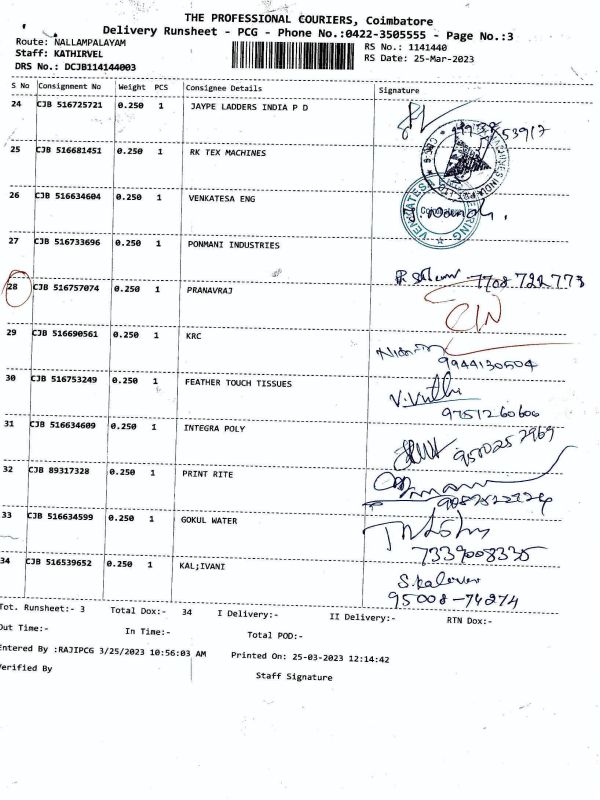 THE PROFESSIONAL COURIERS, Coimbatore
Delivery Runsheet - PCG - Phone No.:0422-3505555 - Page No.:3
Route: NALLAMPALAYAM
Staff: KATHIRVEL
DRS No.: DCJB114144003
RS No.: 1141440
RS Date: 25-Mar-2023
S No Consignment No Weight PCS Consignee Details Signature
24 CJB 516725721 0.250 1 JAYPE LADDERS INDIA P D
25 CJB 516681451 0.250 1 RK TEX MACHINES
26 CJB 516634604 0.250 1 VENKATESA ENG
27 CJB 516733696 0.250 1 PONMANI INDUSTRIES
7708 722773
28 CJB 516757074 0.250 1 PRANAVRAJ
29 CJB 516690561 0.250 1 KRC
9944130504
30 CJB 516753249 0.250 1 FEATHER TOUCH TISSUES
9751260600
31 CJB 516634609 0.250 1 INTEGRA POLY
32 CJB 89317328 0.250 1 PRINT RITE
33 CJB 516634599 0.250 1 GOKUL WATER
7339008335
34 CJB 516539652 0.250 1 KAL;IVANI
95008-74274
Tot. Runsheet:- 3 Total Dox:- 34 I Delivery:- II Delivery:- RTN Dox:-
Out Time:- In Time:- Total POD:-
Entered By :RAJIPCG 3/25/2023 10:56:03 AM Printed On: 25-03-2023 12:14:42
Verified By Staff Signature